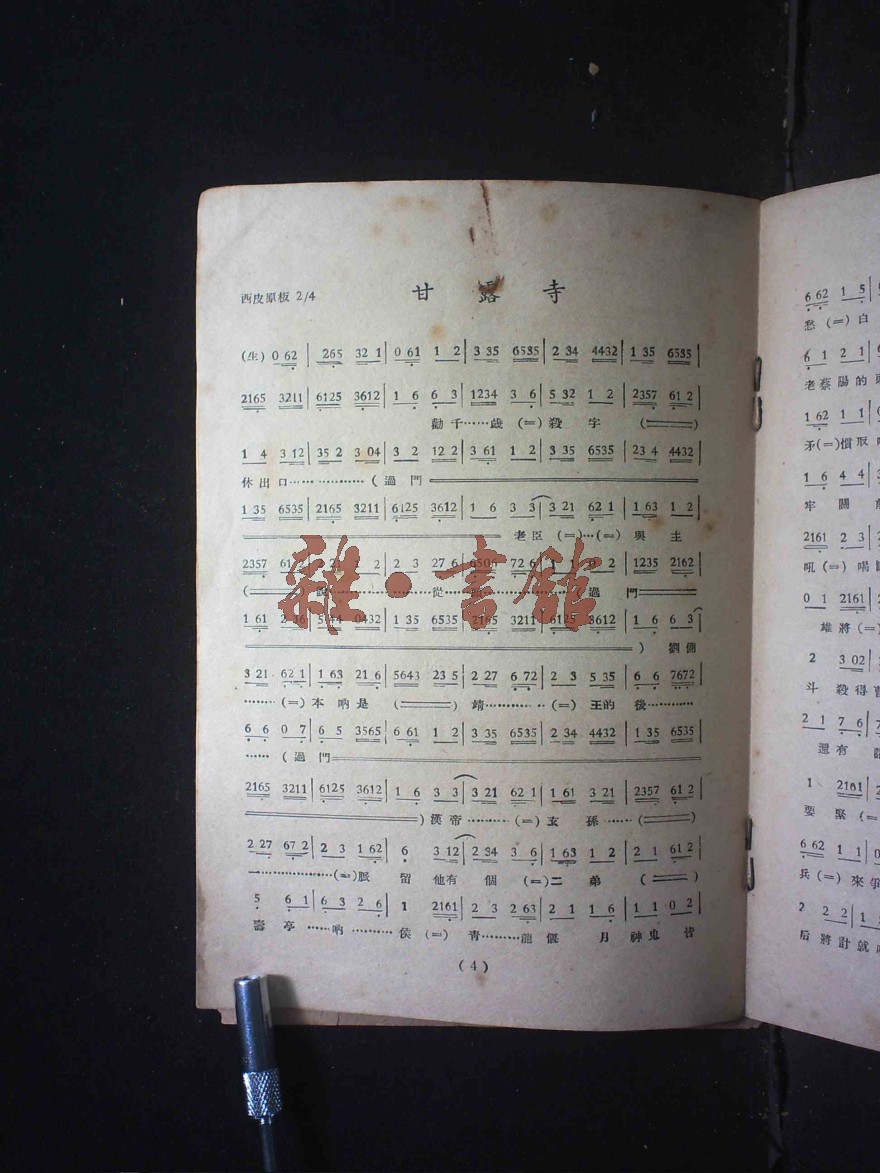 甘露寺
西皮原板 2/4
(生) 0 62 | 265 32 1 | 0 61 1 2 | 3 35 6535 | 2 34 4432 | 1 35 6535
2165 3211 | 6125 3612 | 1 6 6 3 | 1234 3 6 | 5 32 1 2 | 2357 61 2
勸千……歲 (=) 殺字 (===)
1 4 3 12 | 35 2 3 04 | 3 2 12 2 | 3 61 1 2 | 3 35 6535 | 23 4 4432
休出口………………(過門
1 35 6535 | 2165 3211 | 6125 3612 | 1 6 3 3 | 3 21 62 1 | 1 63 1 2
老臣 (=)…(=) 與主
2357 1 2 | 2 3 27 6 | 72 6 | 2 | 1235 2162
(
過門
1 61 | 0432 | 1 35 6535 | 2165 3211 | 6125 3612 | 1 6 6 3
) 劉備
3 21 62 1 | 1 63 21 6 | 5643 23 5 | 2 27 6 72 | 2 3 5 35 | 6 6 7672
………(=)本吶是 (===) 靖…………(=)王的後…………
6 6 0 7 | 6 5 3565 | 6 61 1 2 | 3 35 6535 | 2 34 4432 | 1 35 6535
……(過門
2165 3211 | 6125 3612 | 1 6 3 3 | 3 21 62 1 | 1 61 3 21 | 2357 61 2
)漢帝…………(=)玄孫……(===)
2 27 67 2 | 2 3 1 62 | 6 3 12 | 2 34 3 6 | 1 63 1 2 | 2 1 61 2
………………(=)脈留他有個 (=)二弟 (===)
5 6 1 | 6 3 2 6 | 1 2161 | 2 3 2 63 | 2 1 1 6 | 1 1 0 2
壽亭……吶………侯 (=) 靑………龍偃月神鬼皆
(4)
雜·書館
6 62 1 5
愁 (=) 白
6 1 2 1
老蔡陽的
1 62 1 1
矛(=)慣取
1 6 4 4
牢關
2161 2 3
吼(=)喝
0 1 2161
雄將(=
2 3 02
斗殺得
2 1 7 6
還有
1 2161
要緊(=
6 62 1 1
兵(=)來爭
2 2 2
后將計就